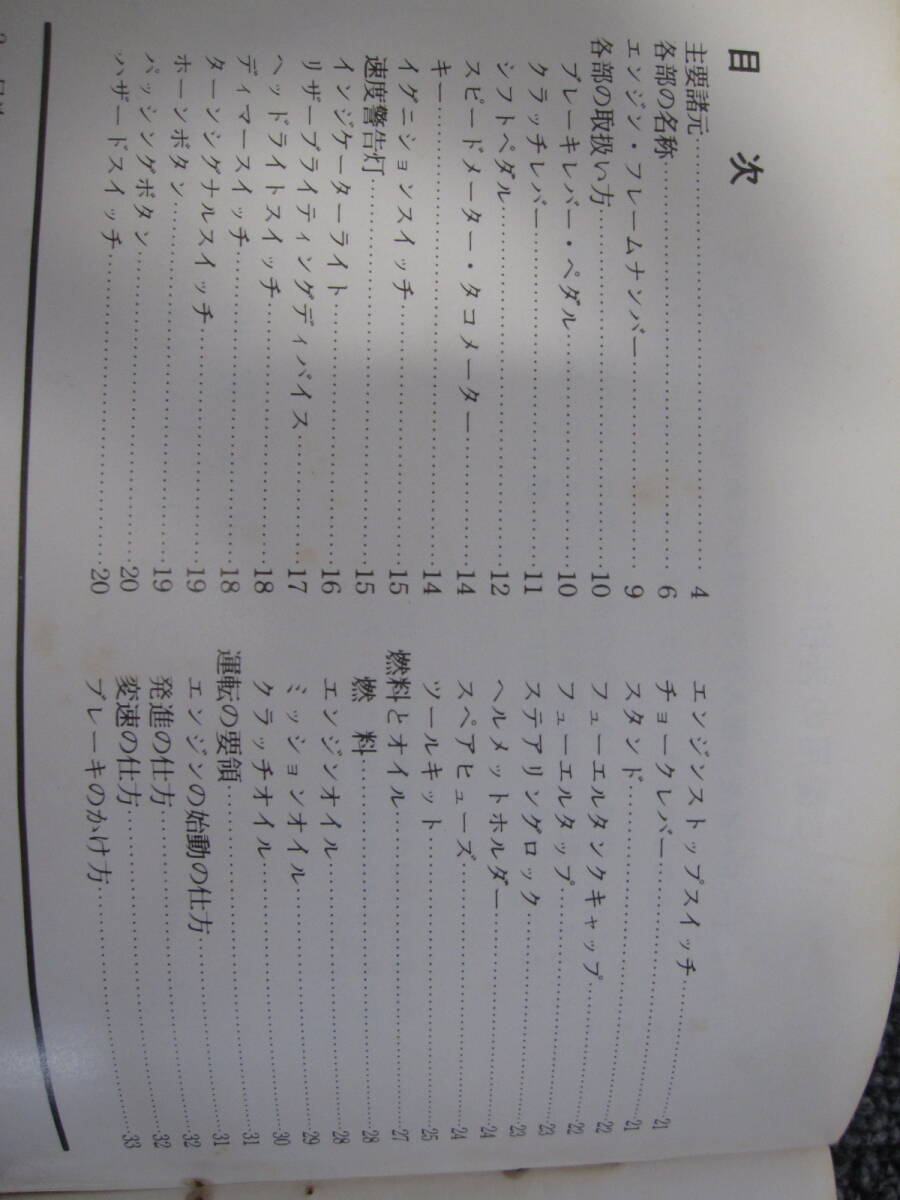 目 次
主要諸元……………………4
各部の名称……………………6
エンジン・フレームナンバー……………………9
各部の取扱い方……………………10
ブレーキレバー・ペダル……………………10
クラッチレバー……………………11
シフトペダル……………………12
スピードメーター・タコメーター……………………14
キー……………………14
イグニションスイッチ……………………15
速度警告灯……………………15
インジケーターライト……………………16
リザーブライティングディバイス……………………17
ヘッドライトスイッチ……………………18
ディマースイッチ……………………18
ターンシグナルスイッチ……………………19
ホーンボタン……………………19
パッシングボタン……………………20
ハザードスイッチ……………………20
エンジンストップスイッチ……………………21
チョークレバー……………………21
スタンド……………………22
フューエルタンクキャップ……………………22
フューエルタップ……………………23
ステアリングロック……………………23
ヘルメットホルダー……………………24
スペアヒューズ……………………24
ツールキット……………………25
燃料とオイル……………………27
燃 料……………………28
エンジンオイル……………………28
ミッションオイル……………………29
クラッチオイル……………………30
運転の要領……………………31
エンジンの始動の仕方……………………31
発進の仕方……………………32
変速の仕方……………………32
ブレーキのかけ方……………………33